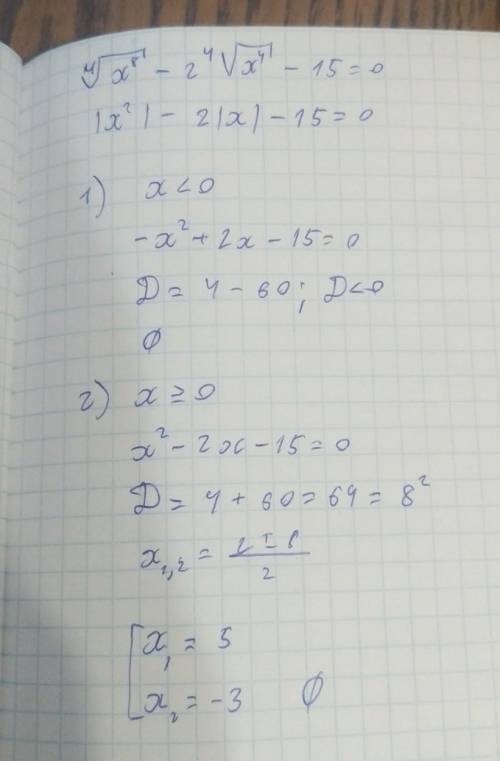 ⁴√x⁸ - 2 ⁴√x⁴ - 15 = 0
|x²| - 2|x| - 15 = 0
1) x < 0
-x² + 2x - 15 = 0
D = 4 - 60; D < 0
∅
2) x ≥ 0
x² - 2x - 15 = 0
D = 4 + 60 = 64 = 8²
x₁,₂ = (2 ± 8)/2
[x₁ = 5
x₂ = -3 ∅